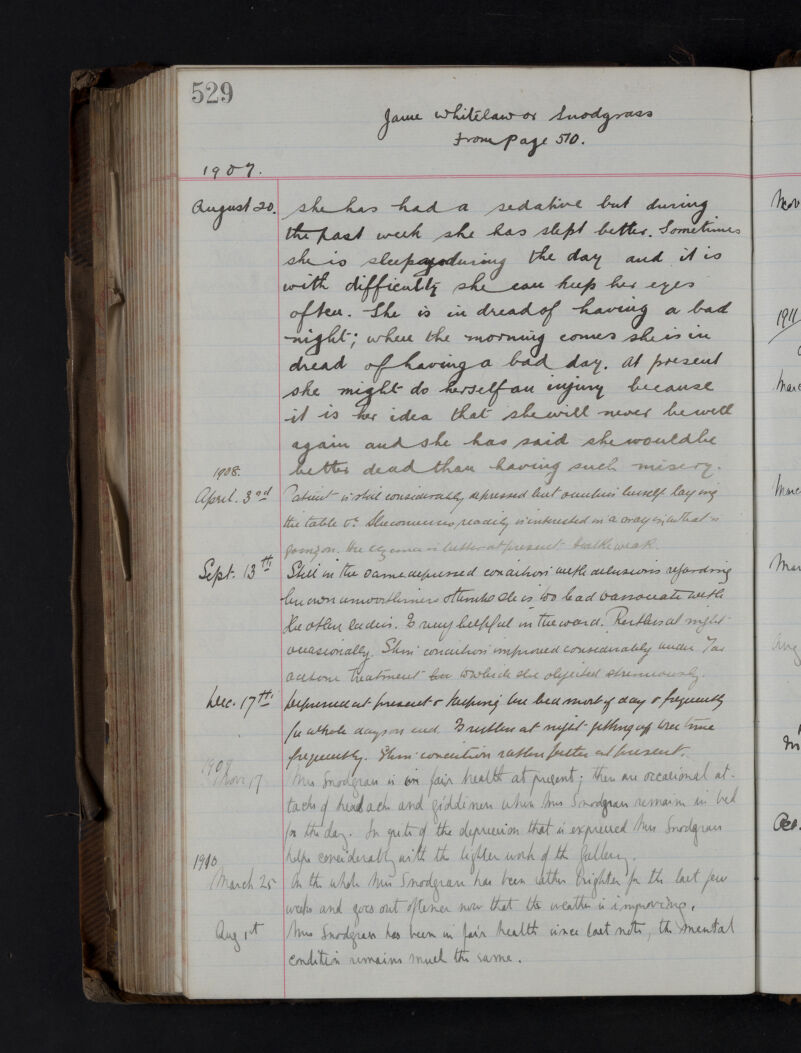 529
Jane Whitelaw or Snodgrass
From Page 510.
1907.
August 20. she has had a sedative but during
the past week she has slept better. Sometimes
she is sleepy during the day and it is
with difficulty she can keep her eyes
often. She is in dread of having a bad
night; when the morning comes she is in
dread of having a bad day. At present
she might do herself an injury because
it is her idea that she will never be well
again and she has said she would be
1908. better dead than having such misery.
April. 3rd Patient is still considerably depressed but occupies herself laying
the table &c. She converses readily is interested in a way in what is
going on. The eczema is better at present
Sept. 13th Still in the same depressed condition with delusions regarding
her own unworthiness thinks she is too bad to associate with
the other ladies. Is very helpful in the ward. Restless at night
occasionally. Skin condition improved considerably under Tar
acetone treatment to which she objected strenuously.
Dec. 17th Depressed at present & keeping her bed most of day & frequently
for whole days on end. Is restless at night getting up
frequently. Skin condition rather better at present.
1909
Nov 17 Mrs Snodgrass is in fair health at present; there are occasional at-
tacks of headache and giddiness when Mrs Snodgrass remains in bed
for the day. In spite of the depression that is expressed Mrs Snodgrass
1910 helps considerably with the lighter work of the Gallery.
March 25 On the whole Mrs Snodgrass has been rather brighter for the last few
weeks and goes out oftener now that the weather is improving.
Aug 1st Mrs Snodgrass has been in fair health since last note, the mental
condition remains much the same.
Nov
1911
Dec.